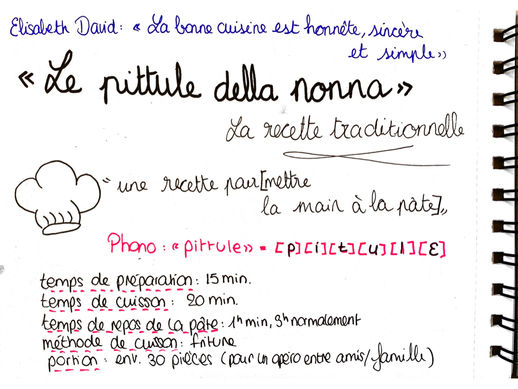 Elisabeth David: « La bonne cuisine est honnête, sincère
et simple »
« Le pittule della nonna »
La recette traditionnelle
"une recette pour [mettre
la main à la pâte]"
Phono : « pittule » = [p][i][t][u][l][ɛ]
temps de préparation : 15 min.
temps de cuisson : 20 min.
temps de repos de la pâte : 1h min, 3h normalement
méthode de cuisson : friture
portion : env. 30 pièces (pour un apéro entre amis/famille)